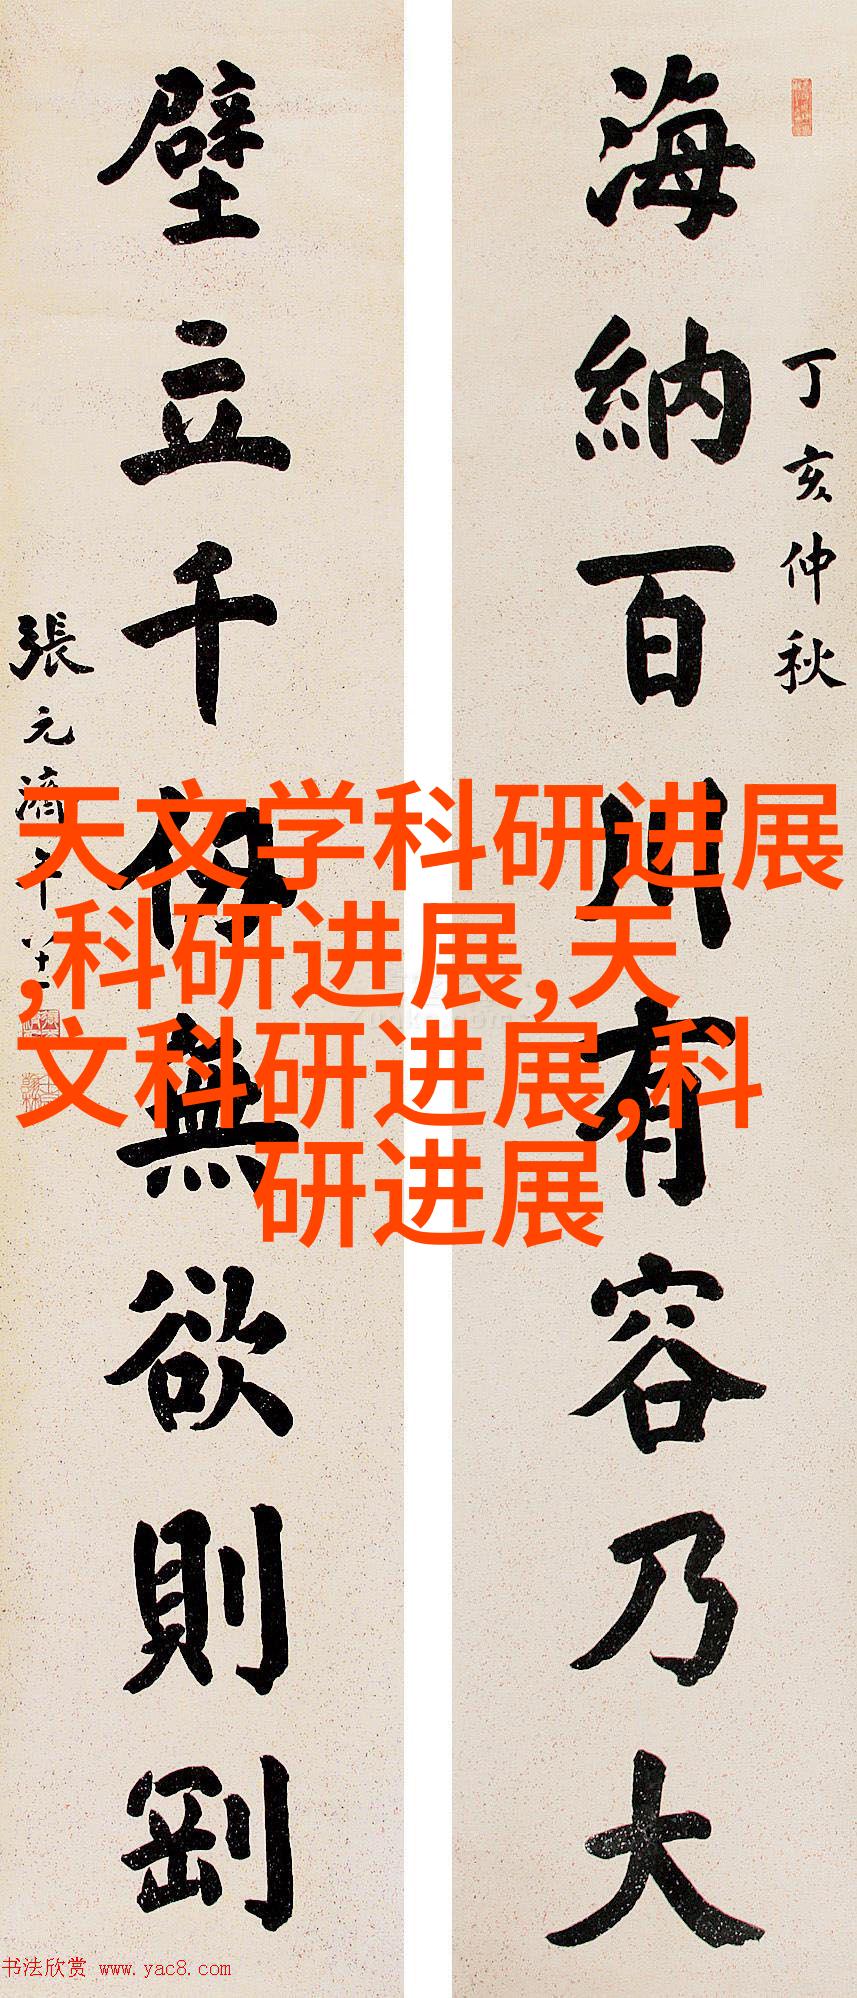 海納百川有容乃大
丁亥仲秋
壁立千仞無欲則剛
張元濟年八十一
天文学科研进展
,科研进展,天
文科研进展,科
研进展
书法欣赏 www.yac8.com